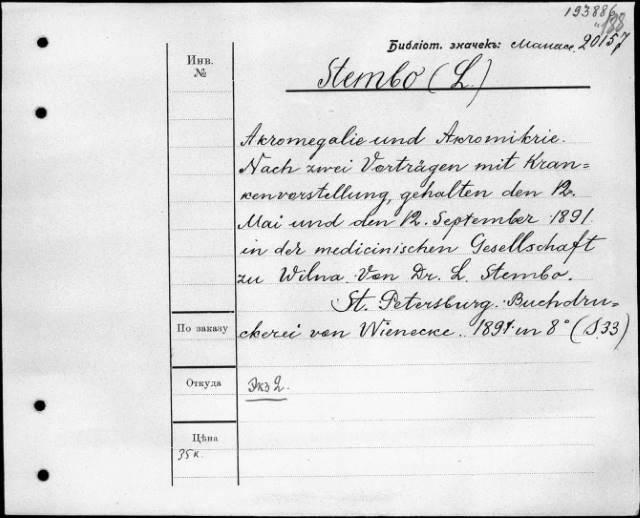 193886
188
Библіот. значекъ: Манасс. 20157
Инв.
№
Stembo (L.)
Akromegalie und Akromikrie.
Nach zwei Vorträgen mit Kran=
kenvorstellung, gehalten den 12.
Mai und den 12. September 1891
in der medicinischen Gesellschaft
zu Wilna. Von Dr. L. Stembo.
St. Petersburg. Buchdru=
ckerei von Wienecke. 1891. in 8° (S. 33)
По заказу
Откуда
Экз 2.
Цѣна
35 к.